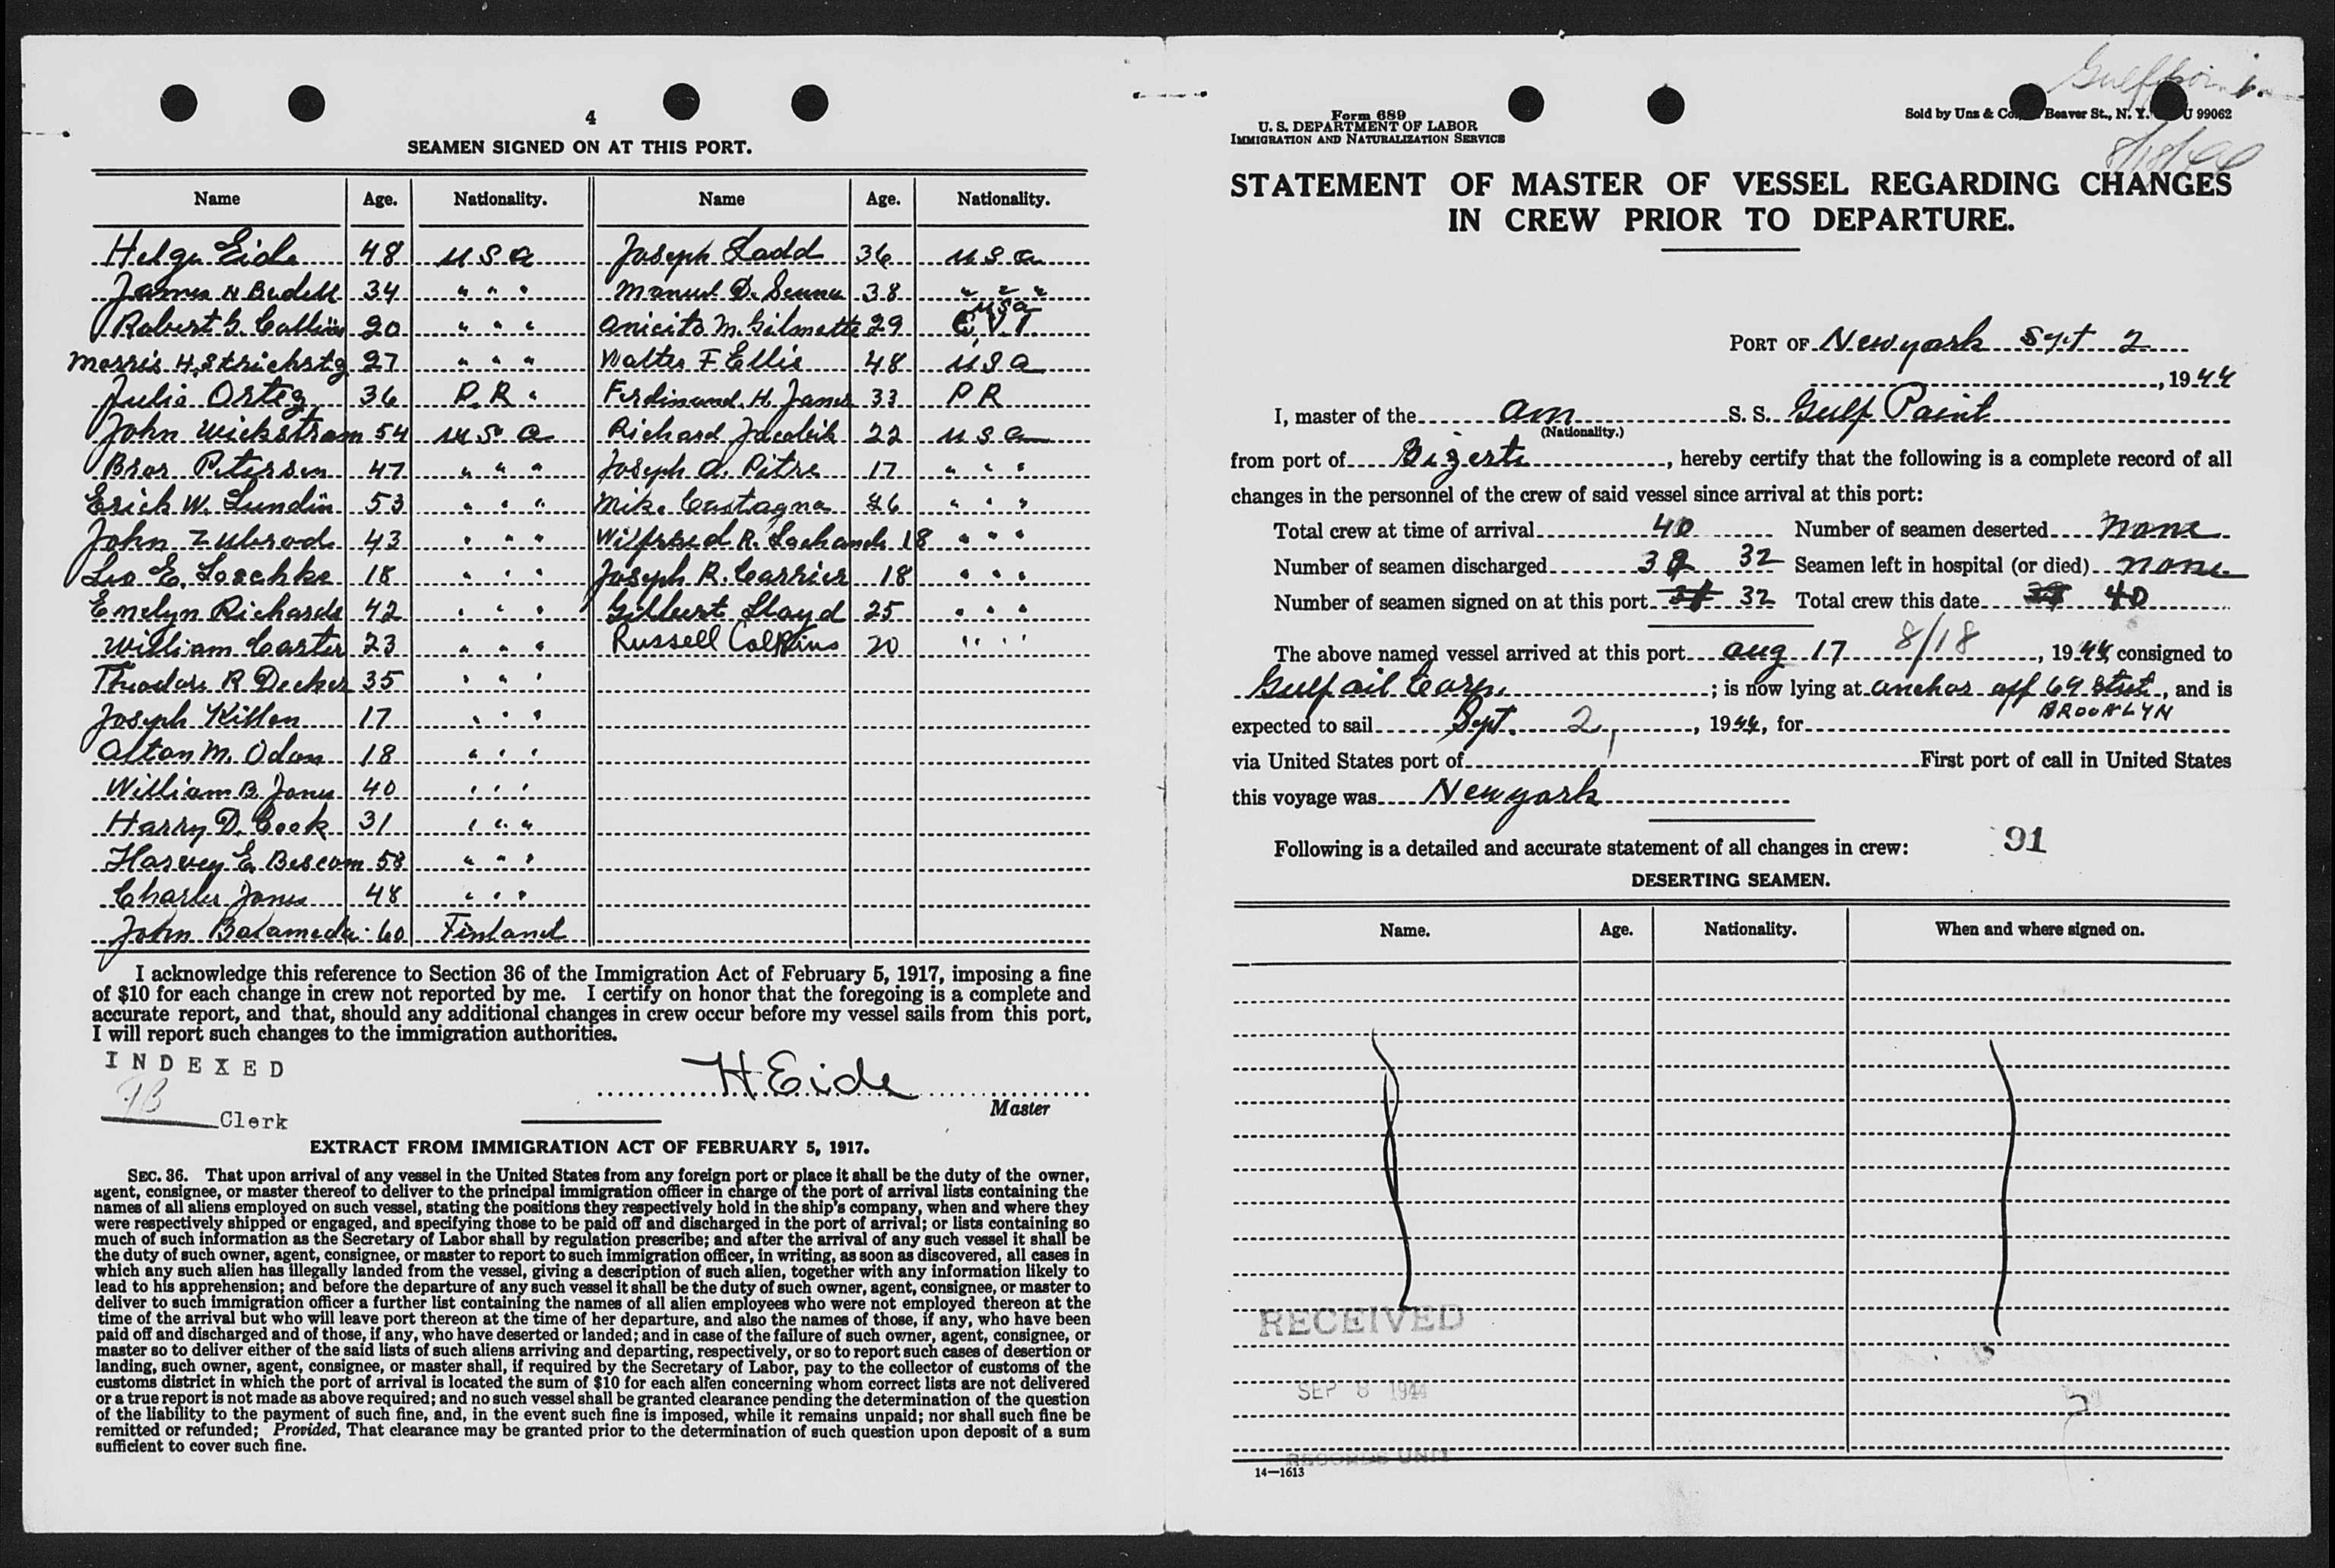 4
SEAMEN SIGNED ON AT THIS PORT.
Name Age. Nationality. Name Age. Nationality.
Helge Eide 48 U S A Joseph Ladd 36 U S A
James N Bedell 34 " " " Manuel D. Senna 38 " " "
Robert G. Collins 20 " " " Anicito M. Gilmette 29 C. V. I. USA
Morris H. 27 " " " Walter F Ellis 48 U S A
Julio Ortez 36 P. R. Ferdinand H. James 33 P R
John Wickstrom 54 U S A Richard 22 U S A
Bror Petersen 47 " " " Joseph A. Pitre 17 " " "
Erick W. Lundin 53 " " " Mike Castagna 26 " " "
John Zubrod 43 " " " Wilfred R. 18 " " "
Leo E. Loschke 18 " " " Joseph R. Carrier 18 " " "
Emelyn Richards 42 " " " Gilbert Lloyd 25 " " "
William Carter 23 " " " Russell Calkins 20 " " "
Theodore R Decker 35 " " "
Joseph Killen 17 " " "
Alton M. Odom 18 " " "
William B. Jones 40 " " "
Harry D. Cook 31 " " "
Harvey E. Bescom 58 " " "
Charles Jones 48 " " "
John 60 Finland
I acknowledge this reference to Section 36 of the Immigration Act of February 5, 1917, imposing a fine
of $10 for each change in crew not reported by me. I certify on honor that the foregoing is a complete and
accurate report, and that, should any additional changes in crew occur before my vessel sails from this port,
I will report such changes to the immigration authorities.
INDEXED
H Eide
Master
Clerk
EXTRACT FROM IMMIGRATION ACT OF FEBRUARY 5, 1917.
SEC. 36. That upon arrival of any vessel in the United States from any foreign port or place it shall be the duty of the owner,
agent, consignee, or master thereof to deliver to the principal immigration officer in charge of the port of arrival lists containing the
names of all aliens employed on such vessel, stating the positions they respectively hold in the ship's company, when and where they
were respectively shipped or engaged, and specifying those to be paid off and discharged in the port of arrival; or lists containing so
much of such information as the Secretary of Labor shall by regulation prescribe; and after the arrival of any such vessel it shall be
the duty of such owner, agent, consignee, or master to report to such immigration officer, in writing, as soon as discovered, all cases in
which any such alien has illegally landed from the vessel, giving a description of such alien, together with any information likely to
lead to his apprehension; and before the departure of any such vessel it shall be the duty of such owner, agent, consignee, or master to
deliver to such immigration officer a further list containing the names of all alien employees who were not employed thereon at the
time of the arrival but who will leave port thereon at the time of her departure, and also the names of those, if any, who have been
paid off and discharged and of those, if any, who have deserted or landed; and in case of the failure of such owner, agent, consignee, or
master so to deliver either of the said lists of such aliens arriving and departing, respectively, or so to report such cases of desertion or
landing, such owner, agent, consignee, or master shall, if required by the Secretary of Labor, pay to the collector of customs of the
customs district in which the port of arrival is located the sum of $10 for each alien concerning whom correct lists are not delivered
or a true report is not made as above required; and no such vessel shall be granted clearance pending the determination of the question
of the liability to the payment of such fine, and, in the event such fine is imposed, while it remains unpaid; nor shall such fine be
remitted or refunded; Provided, That clearance may be granted prior to the determination of such question upon deposit of a sum
sufficient to cover such fine.
Gulfpoint
8/18/44
Form 689
U. S. DEPARTMENT OF LABOR
IMMIGRATION AND NATURALIZATION SERVICE
Sold by Unz & Co. Beaver St., N. Y. U 99062
STATEMENT OF MASTER OF VESSEL REGARDING CHANGES
IN CREW PRIOR TO DEPARTURE.
PORT OF New york Sept 2
, 1944
I, master of the am S. S. Gulf Point
(Nationality.)
from port of Bizerte, hereby certify that the following is a complete record of all
changes in the personnel of the crew of said vessel since arrival at this port:
Total crew at time of arrival 40 Number of seamen deserted none
Number of seamen discharged 32 Seamen left in hospital (or died) none
Number of seamen signed on at this port 31 32 Total crew this date 40
The above named vessel arrived at this port aug 17 8/18, 1944, consigned to
Gulf oil Corp.; is now lying at anchor off 69 Street, and is
BROOKLYN
expected to sail Sept. 2, 1944, for
via United States port of First port of call in United States
this voyage was New york
Following is a detailed and accurate statement of all changes in crew: 91
DESERTING SEAMEN.
Name. Age. Nationality. When and where signed on.
RECEIVED
SEP 8 1944
RECORDS UNIT
14—1613